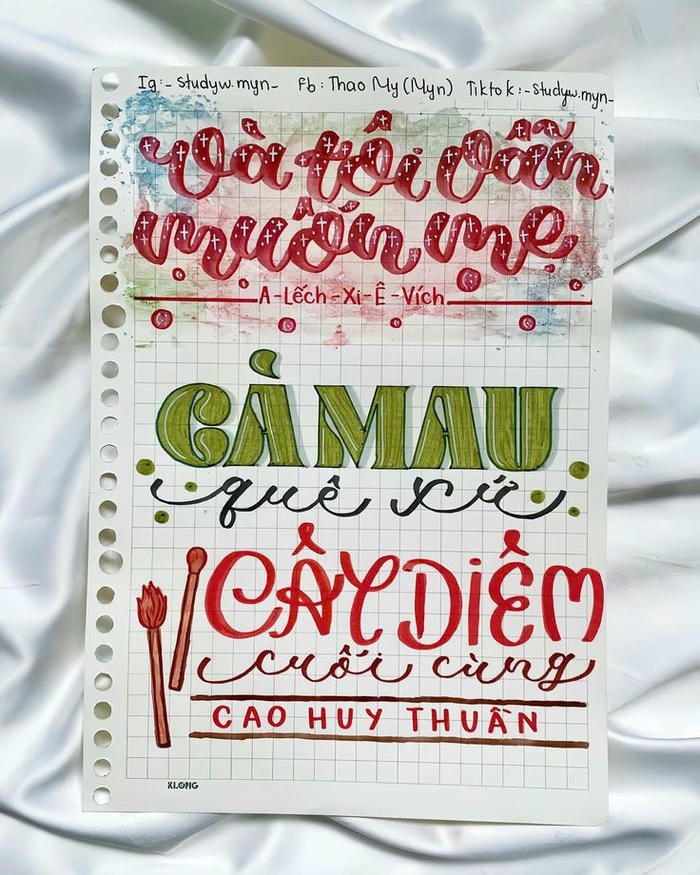 Ig:- Studyw.myn- Fb: Thao My (Myn) Tiktok:-Studyw.myn-
Và tôi vẫn
muốn mẹ
A-Lếch-Xi-Ê-Vích
CÀ MAU
quê xứ
CÂY DIÊM
cuối cùng
CAO HUY THUẦN
KLONG